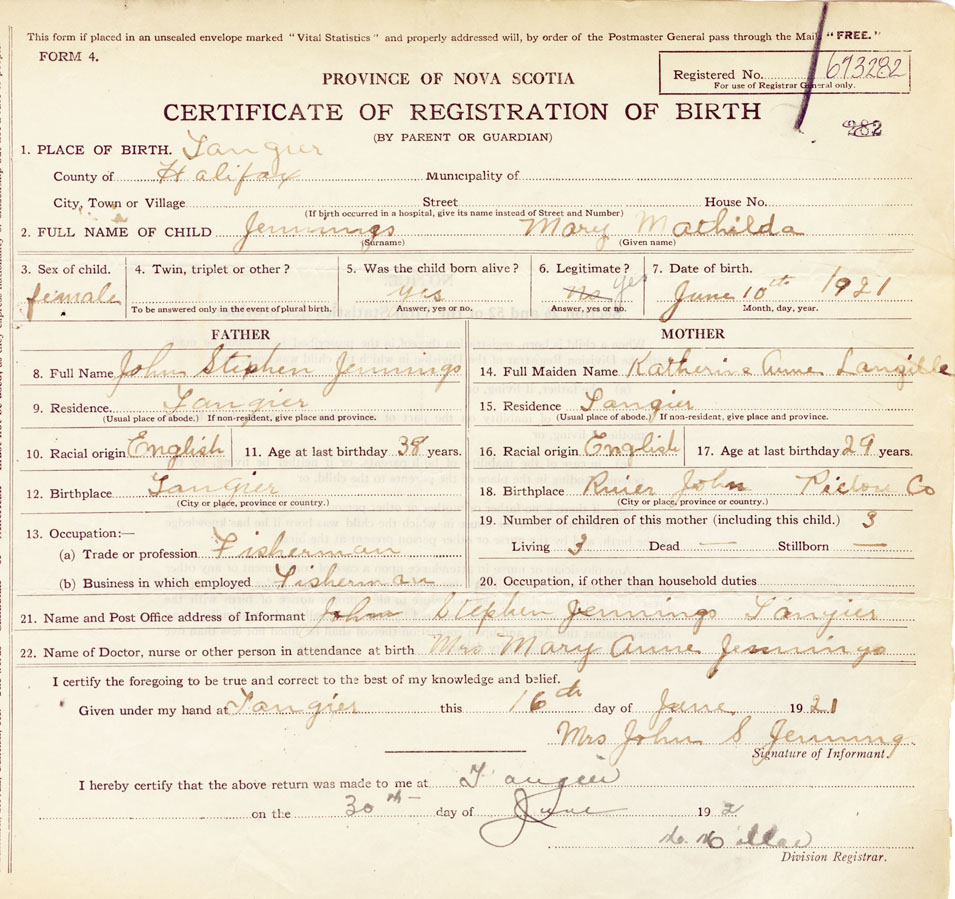 This form if placed in an unsealed envelope marked "Vital Statistics" and properly addressed will, by order of the Postmaster General pass through the Mail "FREE."
FORM 4.
Registered No. 673282
For use of Registrar General only.
PROVINCE OF NOVA SCOTIA
CERTIFICATE OF REGISTRATION OF BIRTH
282
(BY PARENT OR GUARDIAN)
1. PLACE OF BIRTH. Tangier
County of Halifax Municipality of
City, Town or Village Street House No.
(If birth occurred in a hospital, give its name instead of Street and Number)
2. FULL NAME OF CHILD Jennings Mary Mathilda
(Surname) (Given name)
3. Sex of child. 4. Twin, triplet or other? 5. Was the child born alive? 6. Legitimate? 7. Date of birth.
female yes no yes June 10th 1921
To be answered only in the event of plural birth. Answer, yes or no. Answer, yes or no. Month, day, year.
FATHER MOTHER
8. Full Name John Stephen Jennings 14. Full Maiden Name Katherine Anne Langille
9. Residence. Tangier 15. Residence Tangier
(Usual place of abode.) If non-resident, give place and province. (Usual place of abode.) If non-resident, give place and province.
10. Racial origin English 11. Age at last birthday 38 years. 16. Racial origin English 17. Age at last birthday 29 years.
12. Birthplace Tangier 18. Birthplace River John Pictou Co
(City or place, province or country.) (City or place, province or country.)
13. Occupation:— 19. Number of children of this mother (including this child.) 3
(a) Trade or profession Fisherman Living 3 Dead — Stillborn —
(b) Business in which employed Fisherman 20. Occupation, if other than household duties
21. Name and Post Office address of Informant John Stephen Jennings Tangier
22. Name of Doctor, nurse or other person in attendance at birth Mrs Mary Anne Jennings
I certify the foregoing to be true and correct to the best of my knowledge and belief.
Given under my hand at Tangier this 16th day of June 1921
Mrs John S Jenning
Signature of Informant.
I hereby certify that the above return was made to me at Tangier
on the 30th day of June 192
Division Registrar.